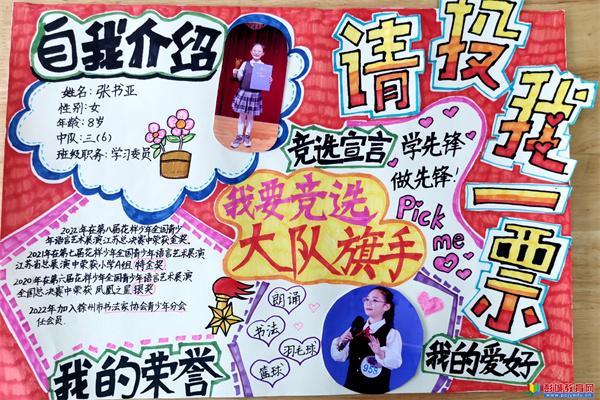 自我介绍
姓名:张书亚
性别:女
年龄:8岁
中队:三(6)
班级职务:学习委员
请投我一票
竞选宣言
学先锋
做先锋!
Pick
me
我要竞选
大队旗手
2022年在第八届花样少年全国青少
年语言艺术展演江苏总决赛中荣获金奖。
2021年在第七届花样少年全国青少年语言艺术展演
江苏省总展演中荣获小学A组特金奖
2020年在第六届花样少年全国青少年语言艺术展演
全国总决赛中荣获凤凰之星银奖
2022年加入徐州市书法家协会青少年分会
任会员.
我的荣誉
朗诵
书法
羽毛球
篮球
958
我的爱好
彭城教育网
www.pcjyedu.cn